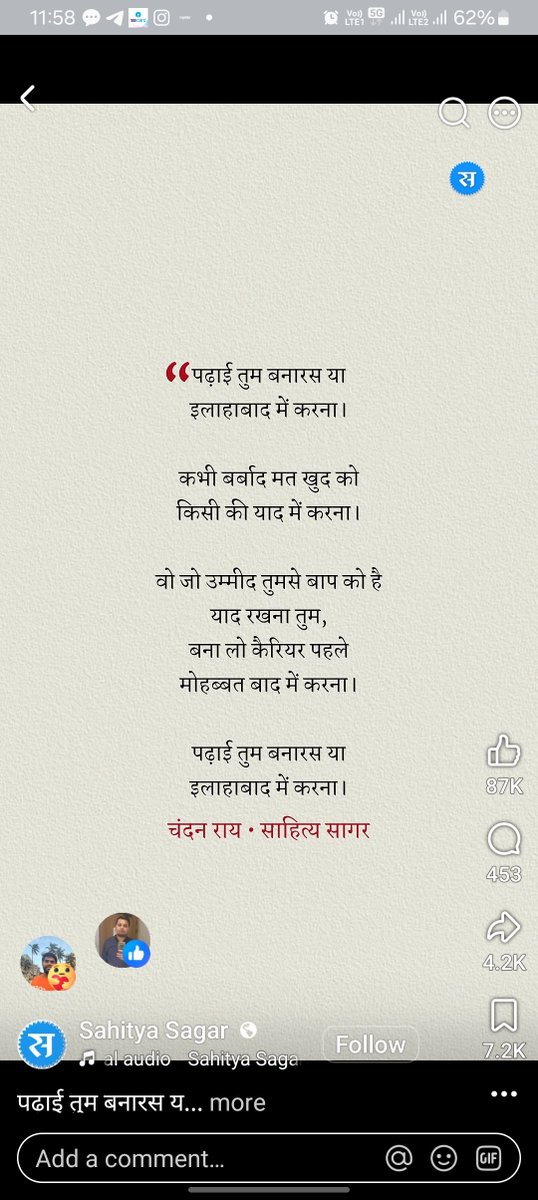 11:58
Vo) LTE1 5G Vo) LTE2 62%
स
“पढ़ाई तुम बनारस या
इलाहाबाद में करना।
कभी बर्बाद मत खुद को
किसी की याद में करना।
वो जो उम्मीद तुमसे बाप को है
याद रखना तुम,
बना लो कैरियर पहले
मोहब्बत बाद में करना।
पढ़ाई तुम बनारस या
इलाहाबाद में करना।
चंदन राय • साहित्य सागर
87K
453
4.2K
7.2K
स
Sahitya Sagar
al audio Sahitya Saga
Follow
पढाई तुम बनारस य... more
Add a comment...
GIF